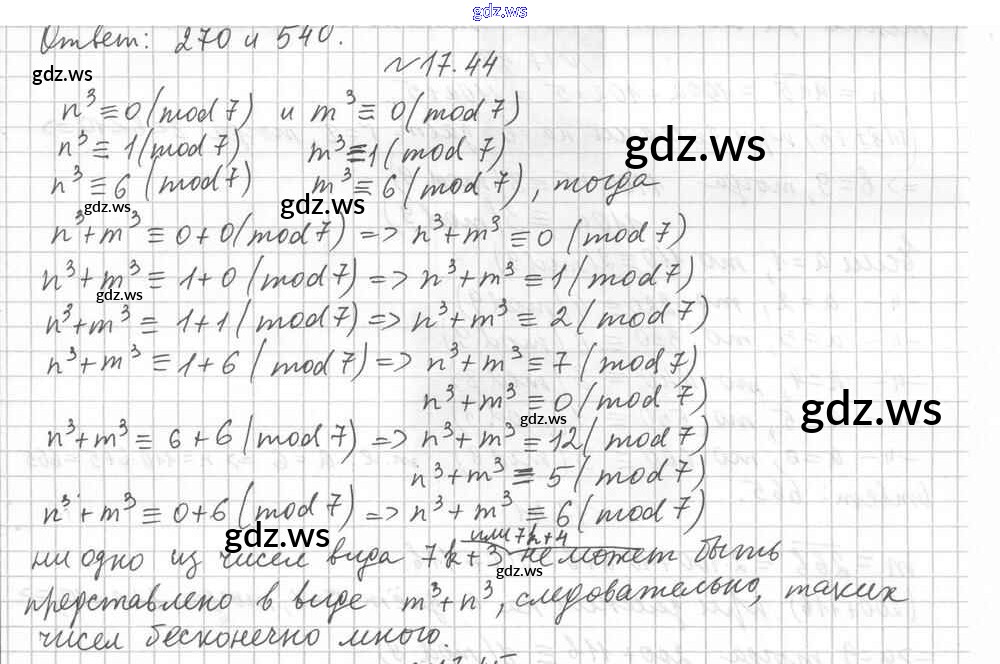 gdz.ws
Ответ: 270 и 540.
gdz.ws
№17.44
n³≡0(mod 7) и m³≡0(mod 7)
n³≡1(mod 7) m³≡1(mod 7)
gdz.ws
n³≡6(mod 7) m³≡6(mod 7), тогда
gdz.ws gdz.ws
n³+m³≡0+0(mod 7)=>n³+m³≡0(mod 7)
n³+m³≡1+0(mod 7)=>n³+m³≡1(mod 7)
gdz.ws
n³+m³≡1+1(mod 7)=>n³+m³≡2(mod 7)
n³+m³≡1+6(mod 7)=>n³+m³≡7(mod 7)
n³+m³≡0(mod 7)
gdz.ws gdz.ws
n³+m³≡6+6(mod 7)=>n³+m³≡12(mod 7)
n³+m³≡5(mod 7)
n³+m³≡0+6(mod 7)=>n³+m³≡6(mod 7)
gdz.ws
или 7k+4
ни одно из чисел вида 7k+3 не может быть
gdz.ws
представлено в виде m³+n³, следовательно, таких
чисел бесконечно много.